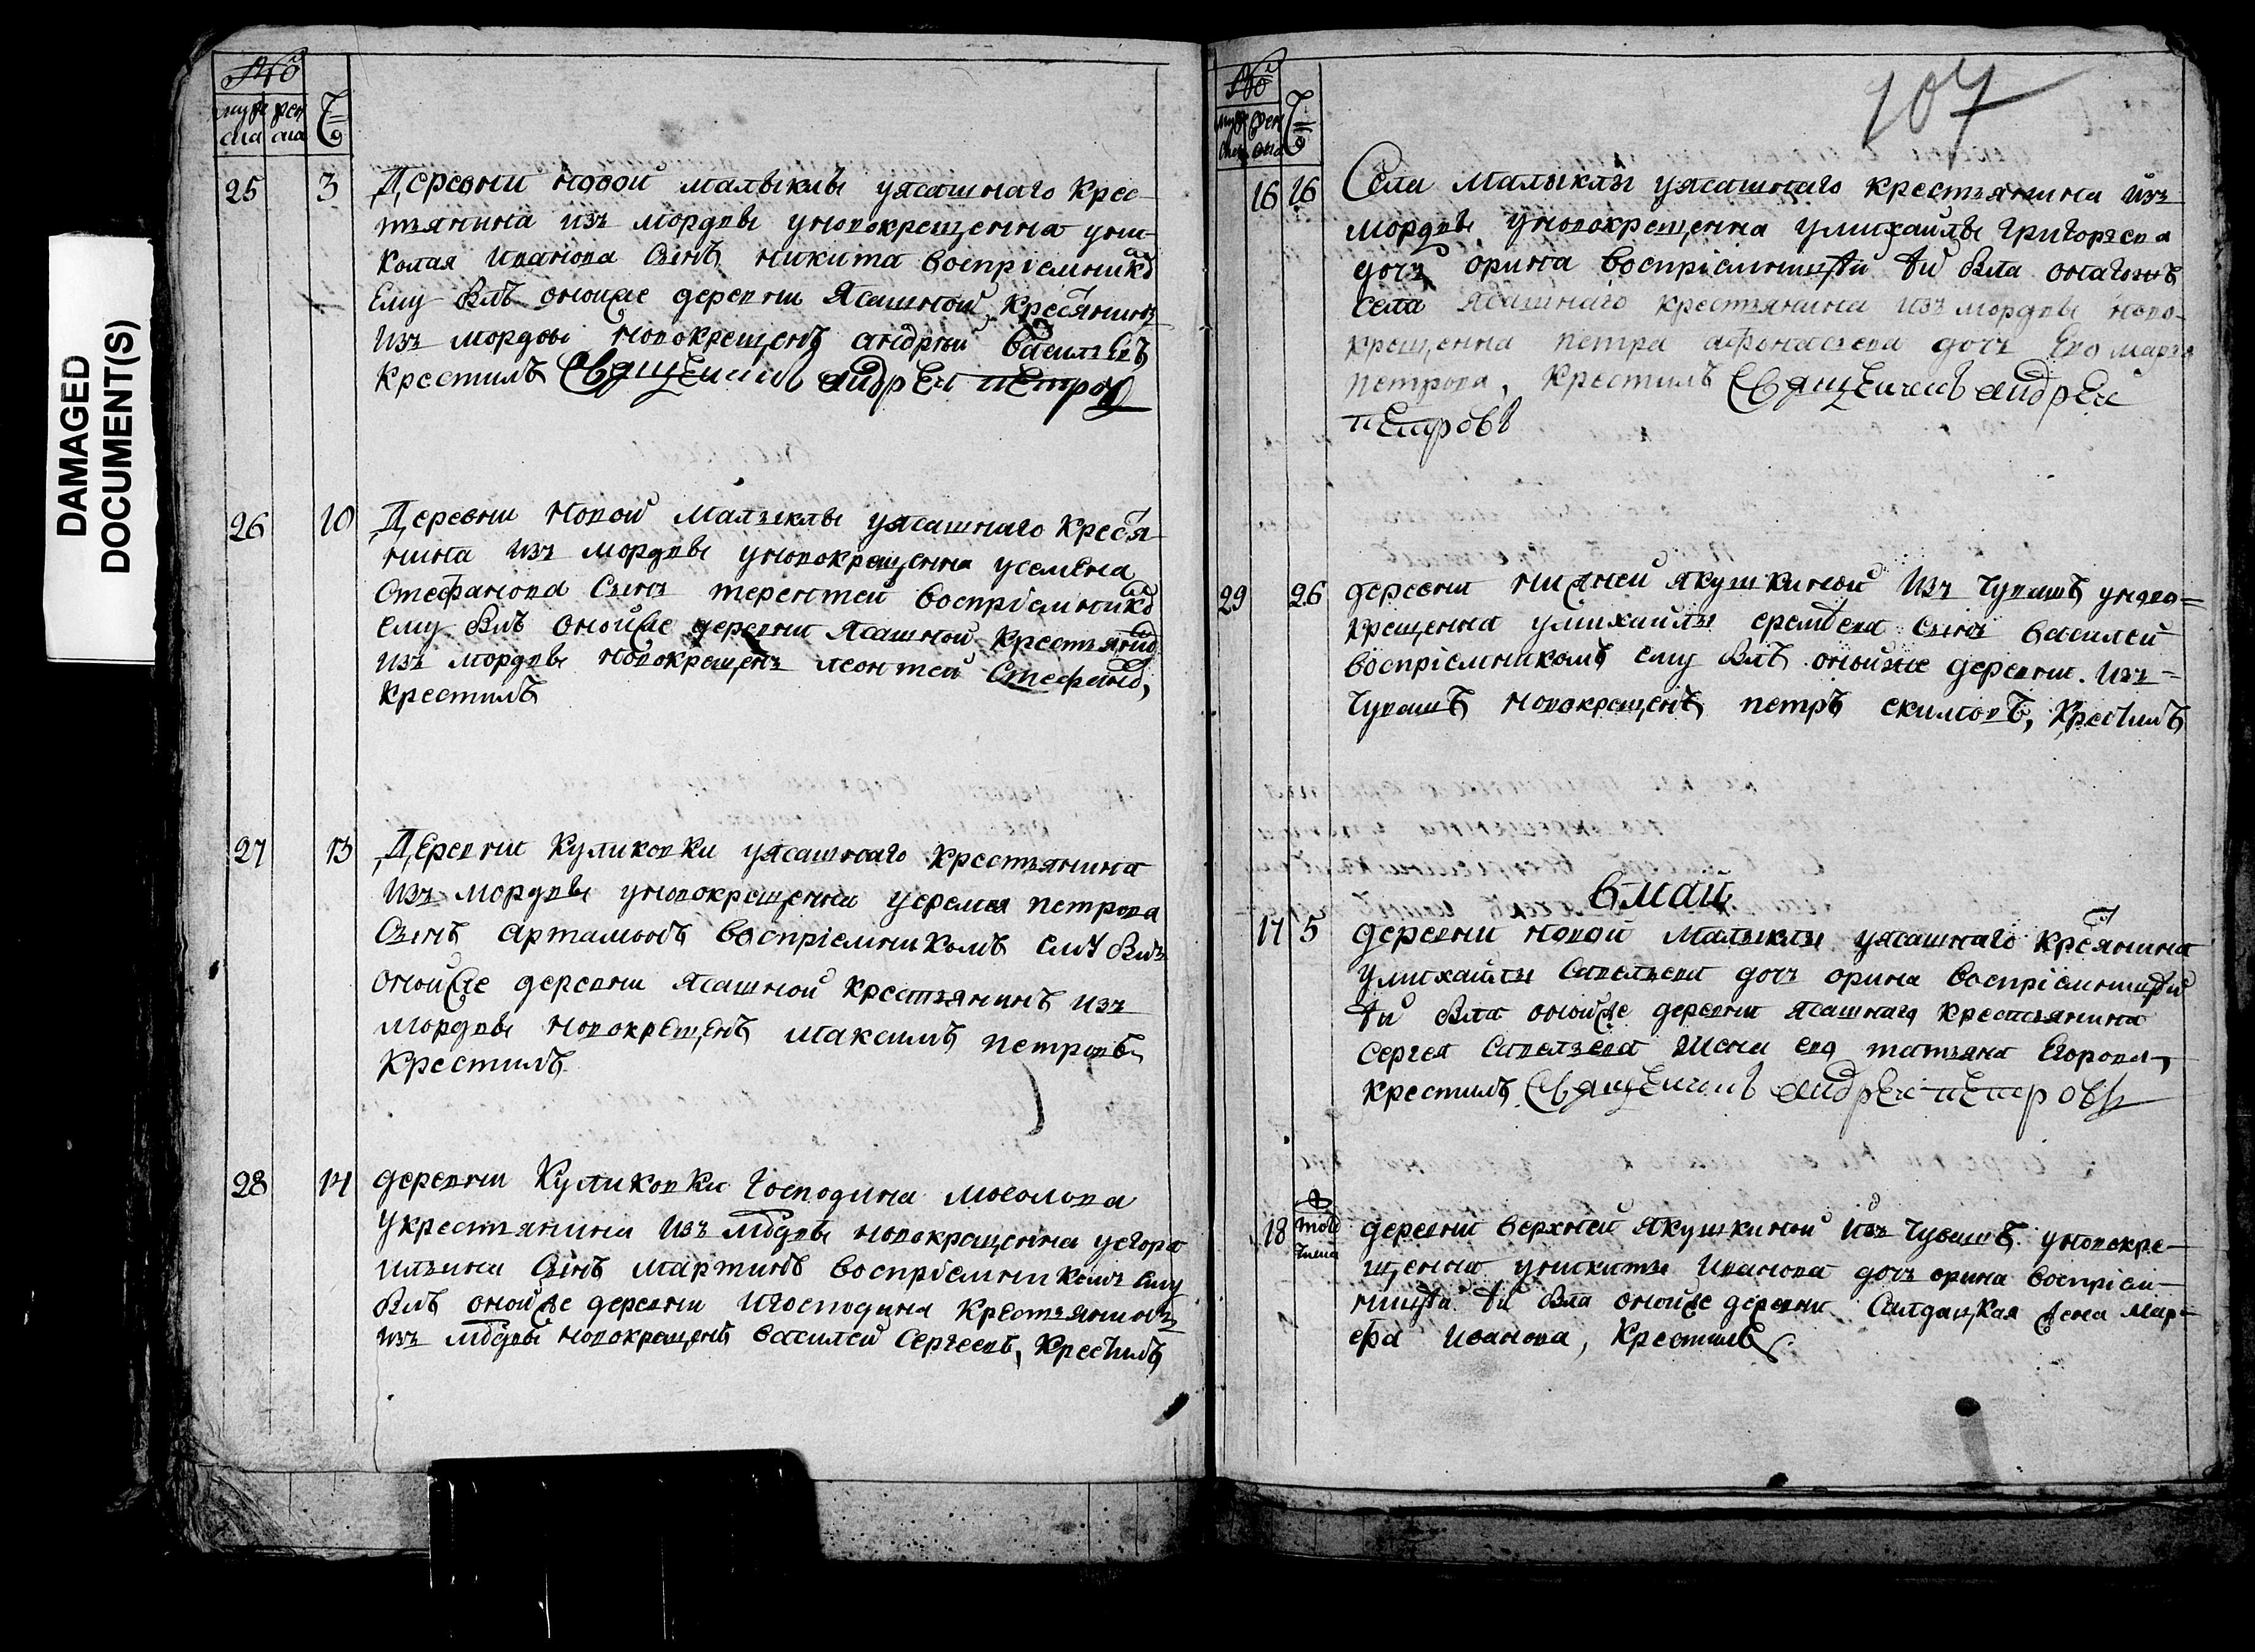 DAMAGED
DOCUMENT(S)
№
муже
ска
жен
ска
Ч
25 3 Деревни новой малыклы уясашнаго крес-
тьянина изъ мордвы уновокрещенна уни-
колая Иванова Сынъ никита воспрiемникъ
ему былъ оной же деревни Ясашной Кресянинъ
изъ мордвы новокрещенъ андрей василевъ
крестилъ Священникъ андреи петровъ
26 10 Деревни новой Малыклы уясашнаго Кресья
нина изъ мордвы уновокрещенна усемена
Стефанова Сынъ терентей воспрiемникъ
ему былъ оной же деревни Ясашной Крестьянинъ
изъ мордвы новокрещенъ леонтей Стефанъ,
крестилъ
27 13 Деревни Куликовки уясашнаго крестьянина
изъ мордвы уновокрещенна уеремея петрова
Сынъ артамонъ воспрiемникомъ ему былъ
оной же деревни ясашной крестьянинъ изъ
мордвы новокрещенъ максимъ петровъ
Крестилъ
28 14 деревни Куликовки Господина мосолова
укрестьянина изъ мордвы новокрещенна уегора
ильина Сынъ мартинъ воспрiемникомъ ему
былъ оной же деревни игосподина крестьянинъ
изъ мордвы новокрещенъ василей Сергеевъ, крестилъ
107
№
муже
ска
жен
ска
Ч
16 16 Села Малыклы уясашнаго крестьянина изъ
мордвы уновокрещенна умихаилы григорьева
дочь орина воспрiемницей ей была онагожъ
села Ясашнаго крестьянина изъ мордвы ново-
крещенна петра афонасьева дочь ево марья
петрова, крестилъ Священникъ андреи
петровъ
29 26 деревни нижней якушкиной изъ Чувашъ уново=
крещенна умихайлы еремеева сынъ василей
воспрiемникомъ ему былъ онойже деревни. изъ=
Чувашъ новокрещенъ петръ екимовъ, крестилъ
вмаи
17 5 деревни новой Малыклы уясашнаго кресянина
умихайлы Савельева дочь орина воспрiемницей
ей была оной же деревни ясашнаго крестьянина
сергея Савельева жена ево татьяна Егорова,
крестилъ Священникъ андреи петровъ
18 того
числа деревни верхней якушкиной изъ Чувашъ уновокре-
щенна уникиты иванова дочь орина воспрiем-
ницей ей была оной же деревни Салдацкая жена мар-
ефа иванова, крестилъ